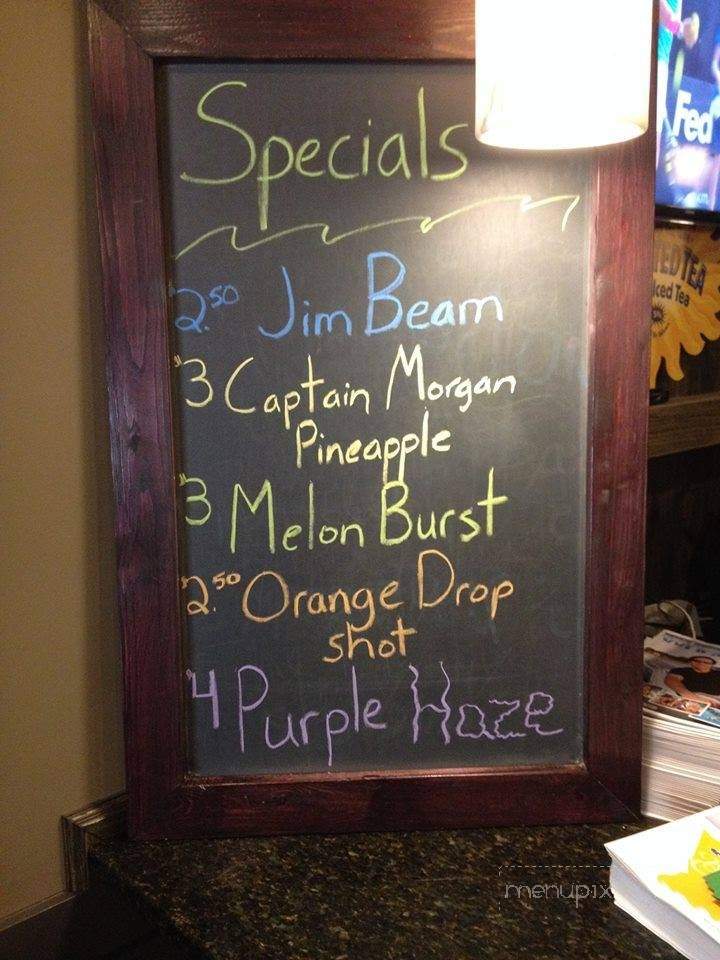 Specials
2.50 Jim Beam
3 Captain Morgan
Pineapple
3 Melon Burst
2.50 Orange Drop
shot
4 Purple Haze
Fed
TEA
Iced Tea
menupix